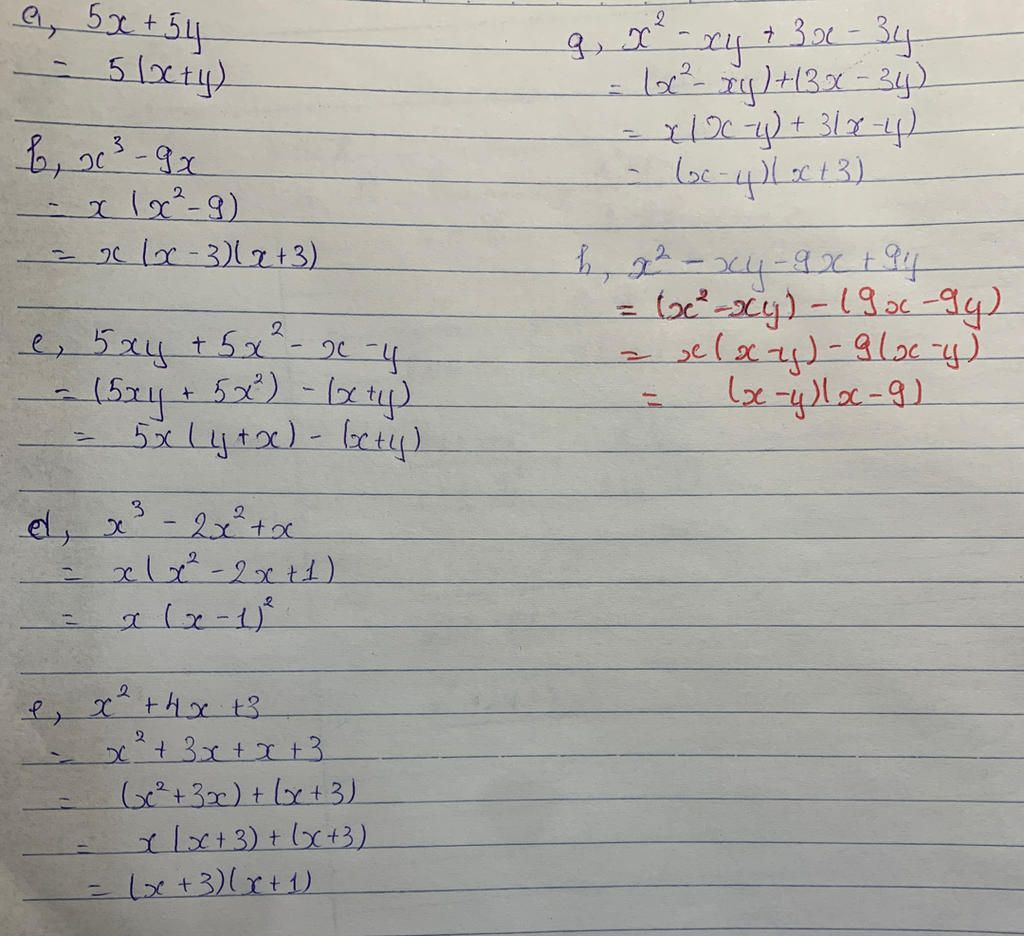 a, 5x + 5y
= 5(x+y)
b, x³ - 9x
= x(x²-9)
= x(x-3)(x+3)
c, 5xy + 5x² - x - y
= (5xy + 5x²) - (x+y)
= 5x(y+x) - (x+y)
d, x³ - 2x² + x
= x(x² - 2x + 1)
= x(x-1)²
e, x² + 4x + 3
= x² + 3x + x + 3
= (x²+3x) + (x+3)
= x(x+3) + (x+3)
= (x+3)(x+1)
g, x² - xy + 3x - 3y
= (x² - xy) + (3x - 3y)
= x(x-y) + 3(x-y)
= (x-y)(x+3)
h, x² - xy - 9x + 9y
= (x² - xy) - (9x - 9y)
= x(x-y) - 9(x-y)
= (x-y)(x-9)